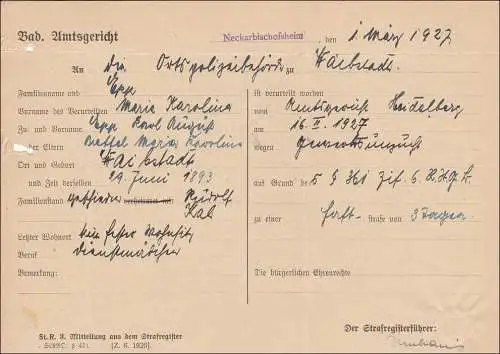 Bad. Amtsgericht Neckarbischofsheim, den 1 März 1927
An die Ortspolizeibehörde zu Waibstadt.
Familienname und Epp
Vorname des Verurteilten Maria Karolina
Zu- und Vorname Epp Karl August
der Eltern Maria Karolina
Ort und Geburt Waibstadt
und Zeit derselben 29. Juni 1893
Familienstand geschieden verheiratet mit Rudolf
Letzter Wohnort kein fester Wohnsitz
Beruf Dienstmädchen
Bemerkung:
St.R. 3. Mitteilung aus dem Strafregister
[Z. 6. 1920].
ist verurteilt worden
vom Amtsgericht Heidelberg
am 16. II. 1927
wegen Gewerbsunzucht
auf Grund de s § 361 Zif. 6 R.St.G.B.
zu einer Haft- strafe von 3 Tagen
Die bürgerlichen Ehrenrechte
Der Strafregisterführer: